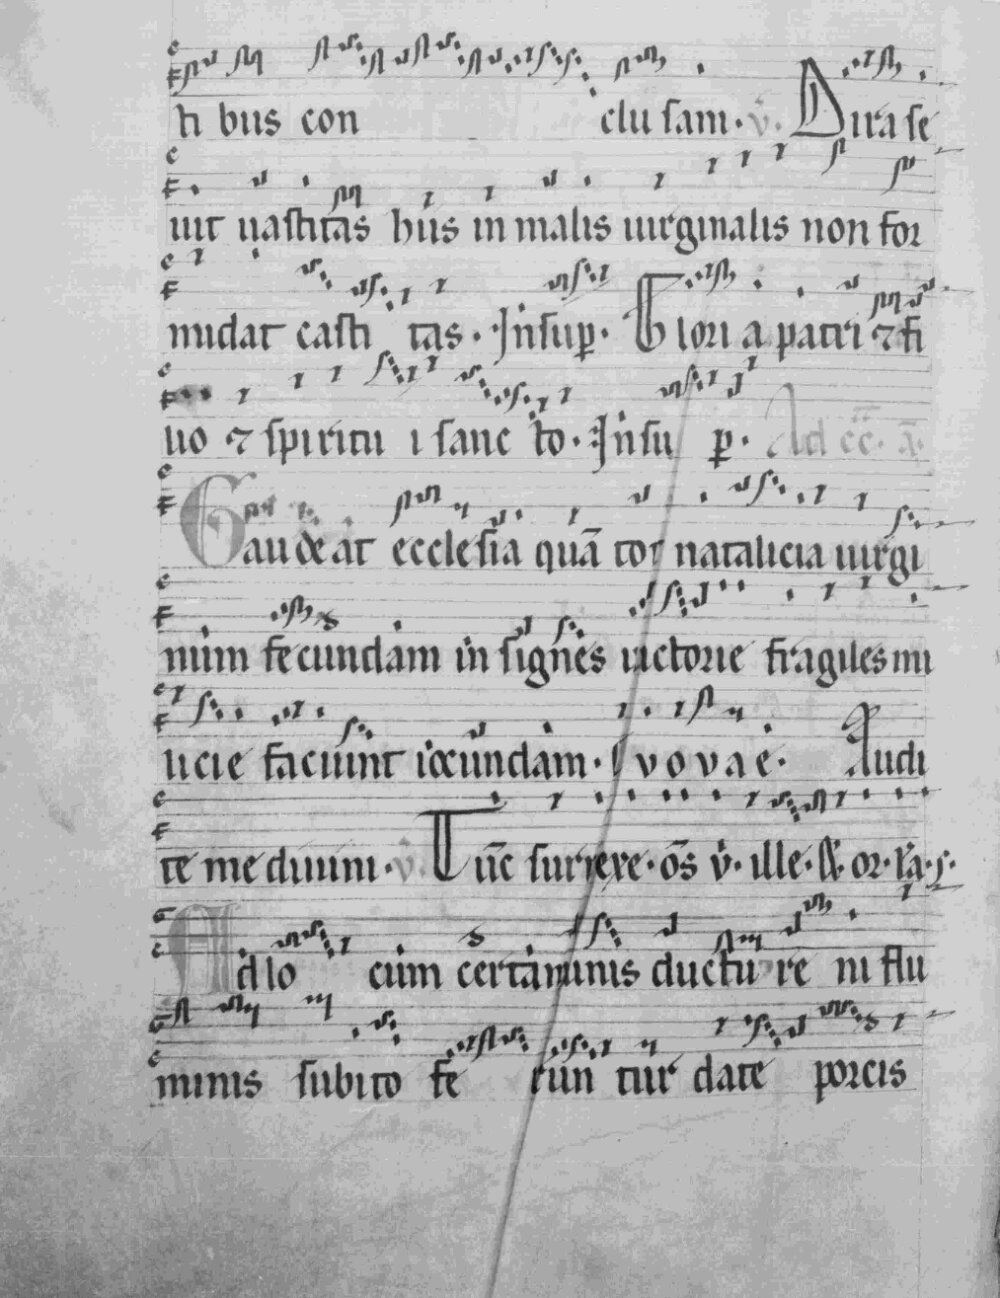 ti bus con clu sam. v̄. Dira se
uit uastitas hus in malis uirginalis non for
midat casti tas. Insup̱. Glori a patri ⁊ fi
lio ⁊ spiritu i sanc to. Insu p̱. Ad
Gaudeat ecclesia quā tot natalicia uirgi
num fecundam in signes uictorie fragiles mi
licie faciunt iocundam. Evovae. Audi
te me diuini. v̄. Tūc surrexe. oēs v̄. ille. or.
Ad lo cum certaminis ductu re ni flu
minis subito fe run tur date porcis